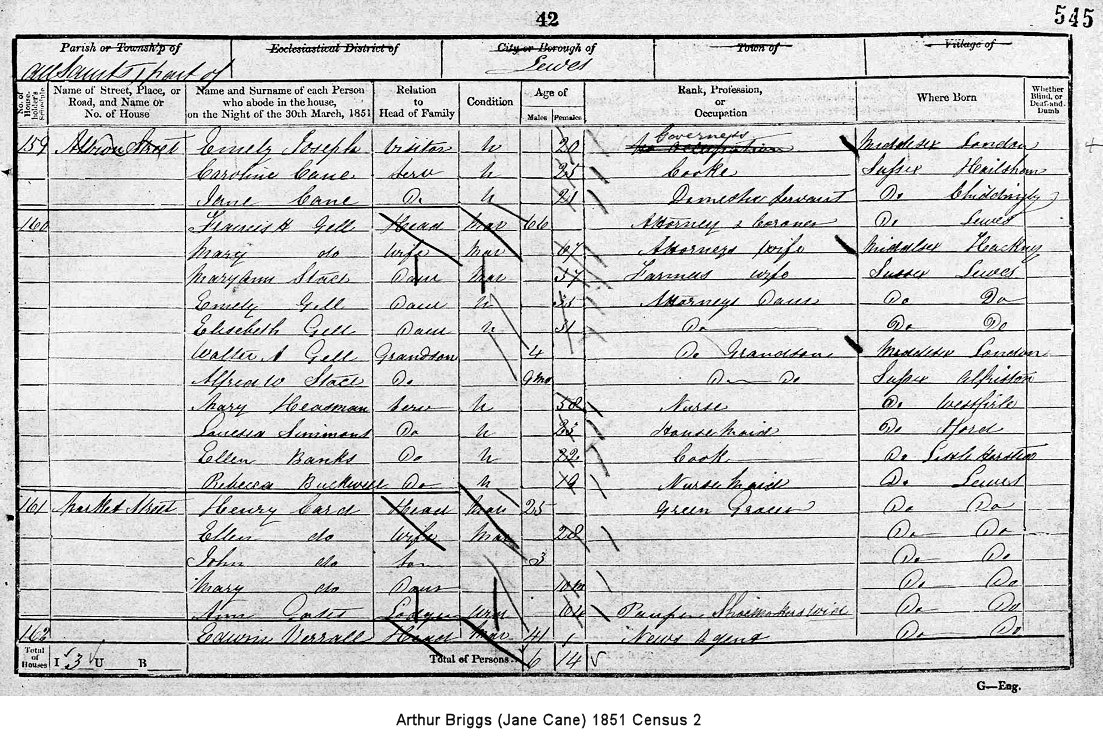 42
545
Parish or Township of Ecclesiastical District of City or Borough of Town of Village of
All Saints part of Lewes
No. of Householder's Schedule Name of Street, Place, or Road, and Name or No. of House Name and Surname of each Person who abode in the house, on the Night of the 30th March, 1851 Relation to Head of Family Condition Age of Males Females Rank, Profession, or Occupation Where Born Whether Blind, or Deaf-and-Dumb
Governess
159 Albion Street Emely Joseph Visitor U 20 No Occupation Middlesex London
Caroline Cane Serv U 25 Cooke Sussex Hailsham
Jane Cane Do U 21 Domestic Servant Do Chiddingly
160 Francis H Gell Head Mar 66 Attorney & Coroner Do Lewes
Mary do Wife Mar 67 Attorneys Wife Middlesex Hackney
Maryann Stace Daur Mar 37 Farmers Wife Sussex Lewes
Emely Gell Daur U Attorneys Daur Do Do
Elisebeth Gell Daur U 31 Do Do Do
Walter A Gell Grandson 4 Do Grandson Middlesex London
Alfred W Stace Do 9 mo Do Do Sussex Alfriston
Mary Headman Serv U 58 Nurse Do Westfirle
Simmons Do U 23 House Maid Do
Ellen Banks Do U 22 Cook Do Little Horsted
Rebecca Buckwell Do U 19 Nurse Maid Do Lewes
161 Market Street Henry Card Head Mar 25 Green Grocer Do Do
Ellen do Wife Mar 28 Do Do
John do Son 3 Do Do
Mary do Daur 10 m Do Do
Ann Lodger 64 Pauper Shoemakers Wife Do Do
162 Edwin Verrall Head Mar 41 News Agent Do Do
Total of Houses I 3 U B Total of Persons 6 14
G—Eng.
Arthur Briggs (Jane Cane) 1851 Census 2